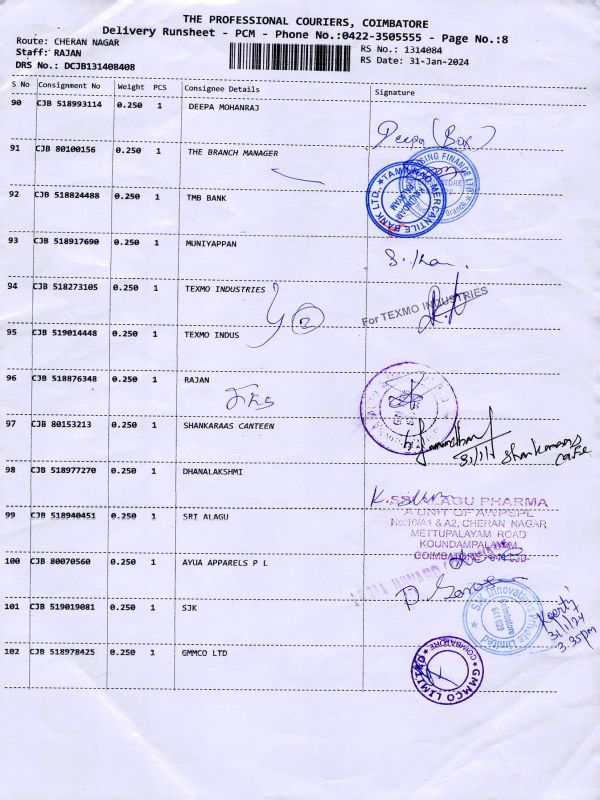 THE PROFESSIONAL COURIERS, COIMBATORE
Delivery Runsheet - PCM - Phone No.:0422-3505555 - Page No.:8
Route: CHERAN NAGAR
RS No.: 1314084
Staff: RAJAN
RS Date: 31-Jan-2024
DRS No.: DCJB131408408
S No Consignment No Weight PCS Consignee Details Signature
90 CJB 518993114 0.250 1 DEEPA MOHANRAJ
Deepa (Box)
91 CJB 80100156 0.250 1 THE BRANCH MANAGER
TAMILNAD MERCANTILE BANK LTD.
92 CJB 518824488 0.250 1 TMB BANK
93 CJB 518917690 0.250 1 MUNIYAPPAN
94 CJB 518273105 0.250 1 TEXMO INDUSTRIES
2
For TEXMO INDUSTRIES
95 CJB 519014448 0.250 1 TEXMO INDUS
96 CJB 518876348 0.250 1 RAJAN
97 CJB 80153213 0.250 1 SHANKARAAS CANTEEN
Shankaraas
cafe
98 CJB 518977270 0.250 1 DHANALAKSHMI
99 CJB 518940451 0.250 1 SRI ALAGU
ALAGU PHARMA
A UNIT OF AWPSPL
No.10/A1 & A2, CHERAN NAGAR
METTUPALAYAM ROAD
KOUNDAMPALAYAM
100 CJB 80070560 0.250 1 AYUA APPARELS P L
101 CJB 519019081 0.250 1 SJK
SJK Innovations Private Limited
Coimbatore
641 029
Keerti
31/1/24
3.35pm
102 CJB 518978425 0.250 1 GMMCO LTD
GMMCO LIMITED
COIMBATORE